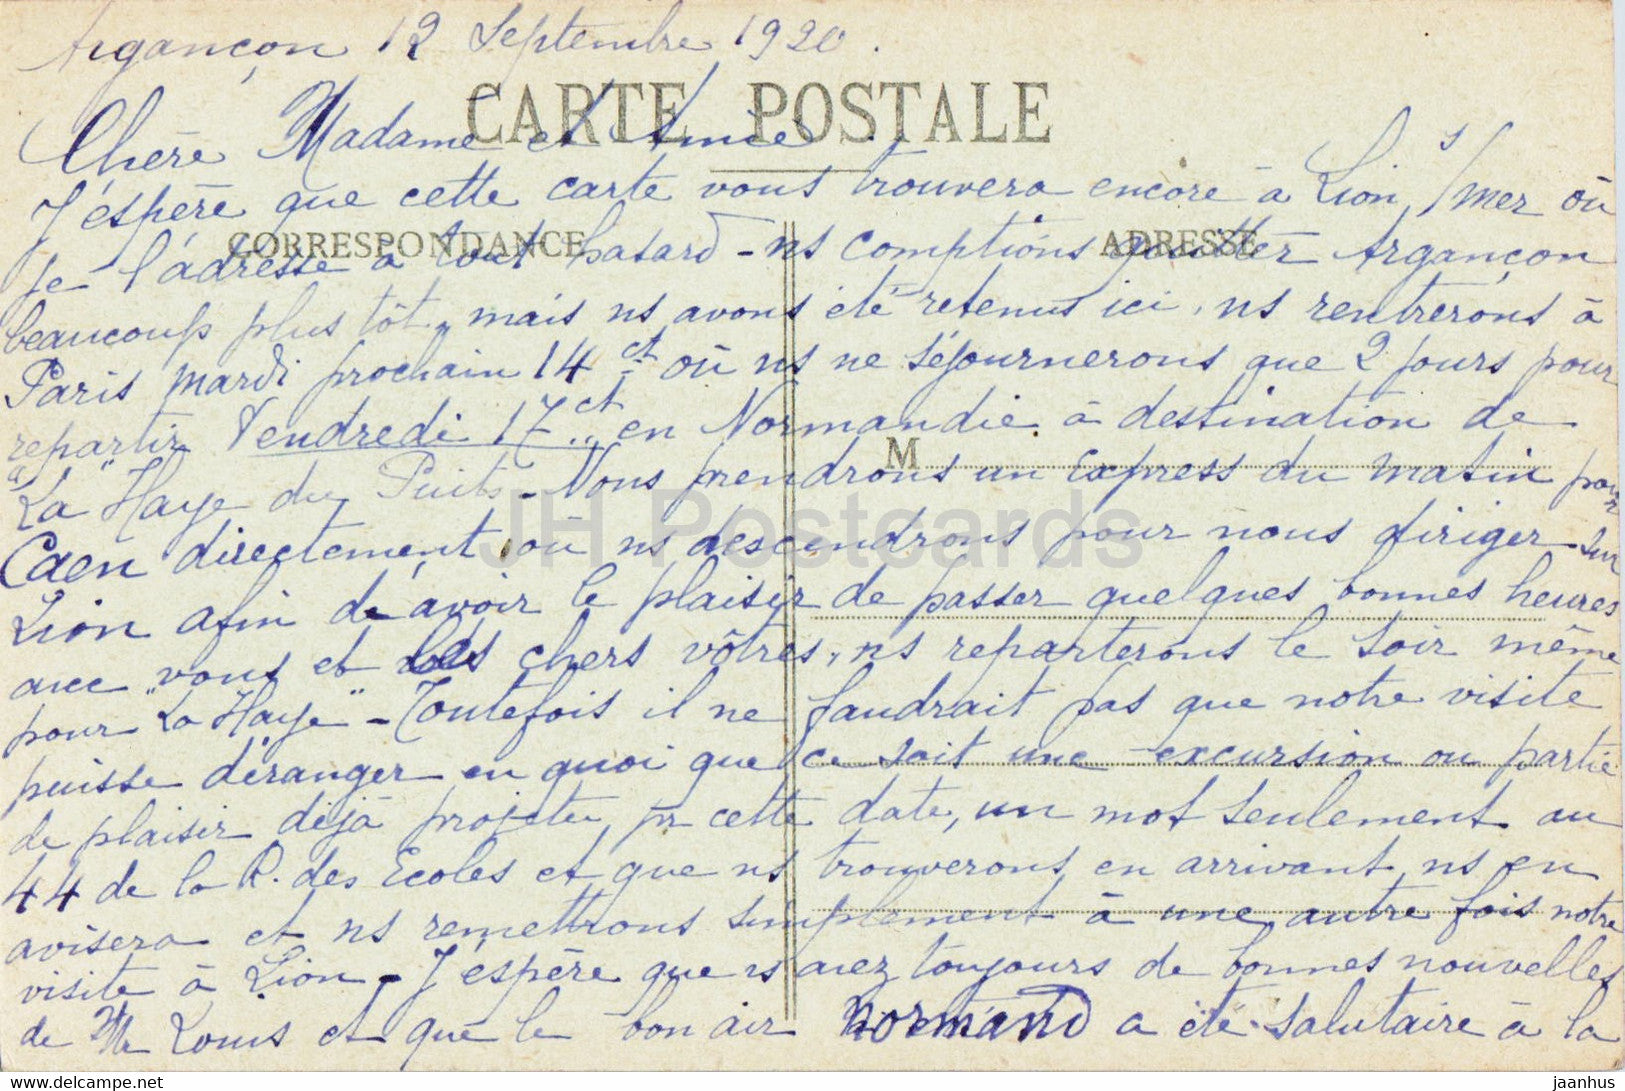 Argançon 12 Septembre 1920.
CARTE POSTALE
Chère Madame et Amie
J'espère que cette carte vous trouvera encore à Lion s/mer où
CORRESPONDANCE ADRESSE
je l'adresse à tout hasard - ns comptions quitter Argançon
beaucoup plus tôt, mais ns avons été retenus ici, ns rentrerons à
Paris mardi prochain 14 ct où ns ne séjournerons que 2 jours pour
repartir Vendredi 17 ct en Normandie à destination de
M
"La Haye du Puits - Nous prendrons un express du matin pour
Caen directement, où ns descendrons pour nous diriger sur
Lion afin d'avoir le plaisir de passer quelques bonnes heures
avec vous et les chers vôtres, ns repartirons le soir même
pour "La Haye" - Toutefois il ne faudrait pas que notre visite
puisse déranger en quoi que ce soit une excursion ou partie
de plaisir déjà projetée, pr cette date, un mot seulement au
44 de la R. des Ecoles et que ns trouverons en arrivant ns en
avisera et ns remettrons simplement à une autre fois notre
visite à Lion - J'espère que vs avez toujours de bonnes nouvelles
de Mr Louis et que le bon air normand a été salutaire à la
JH Postcards
www.delcampe.net
jaanhus